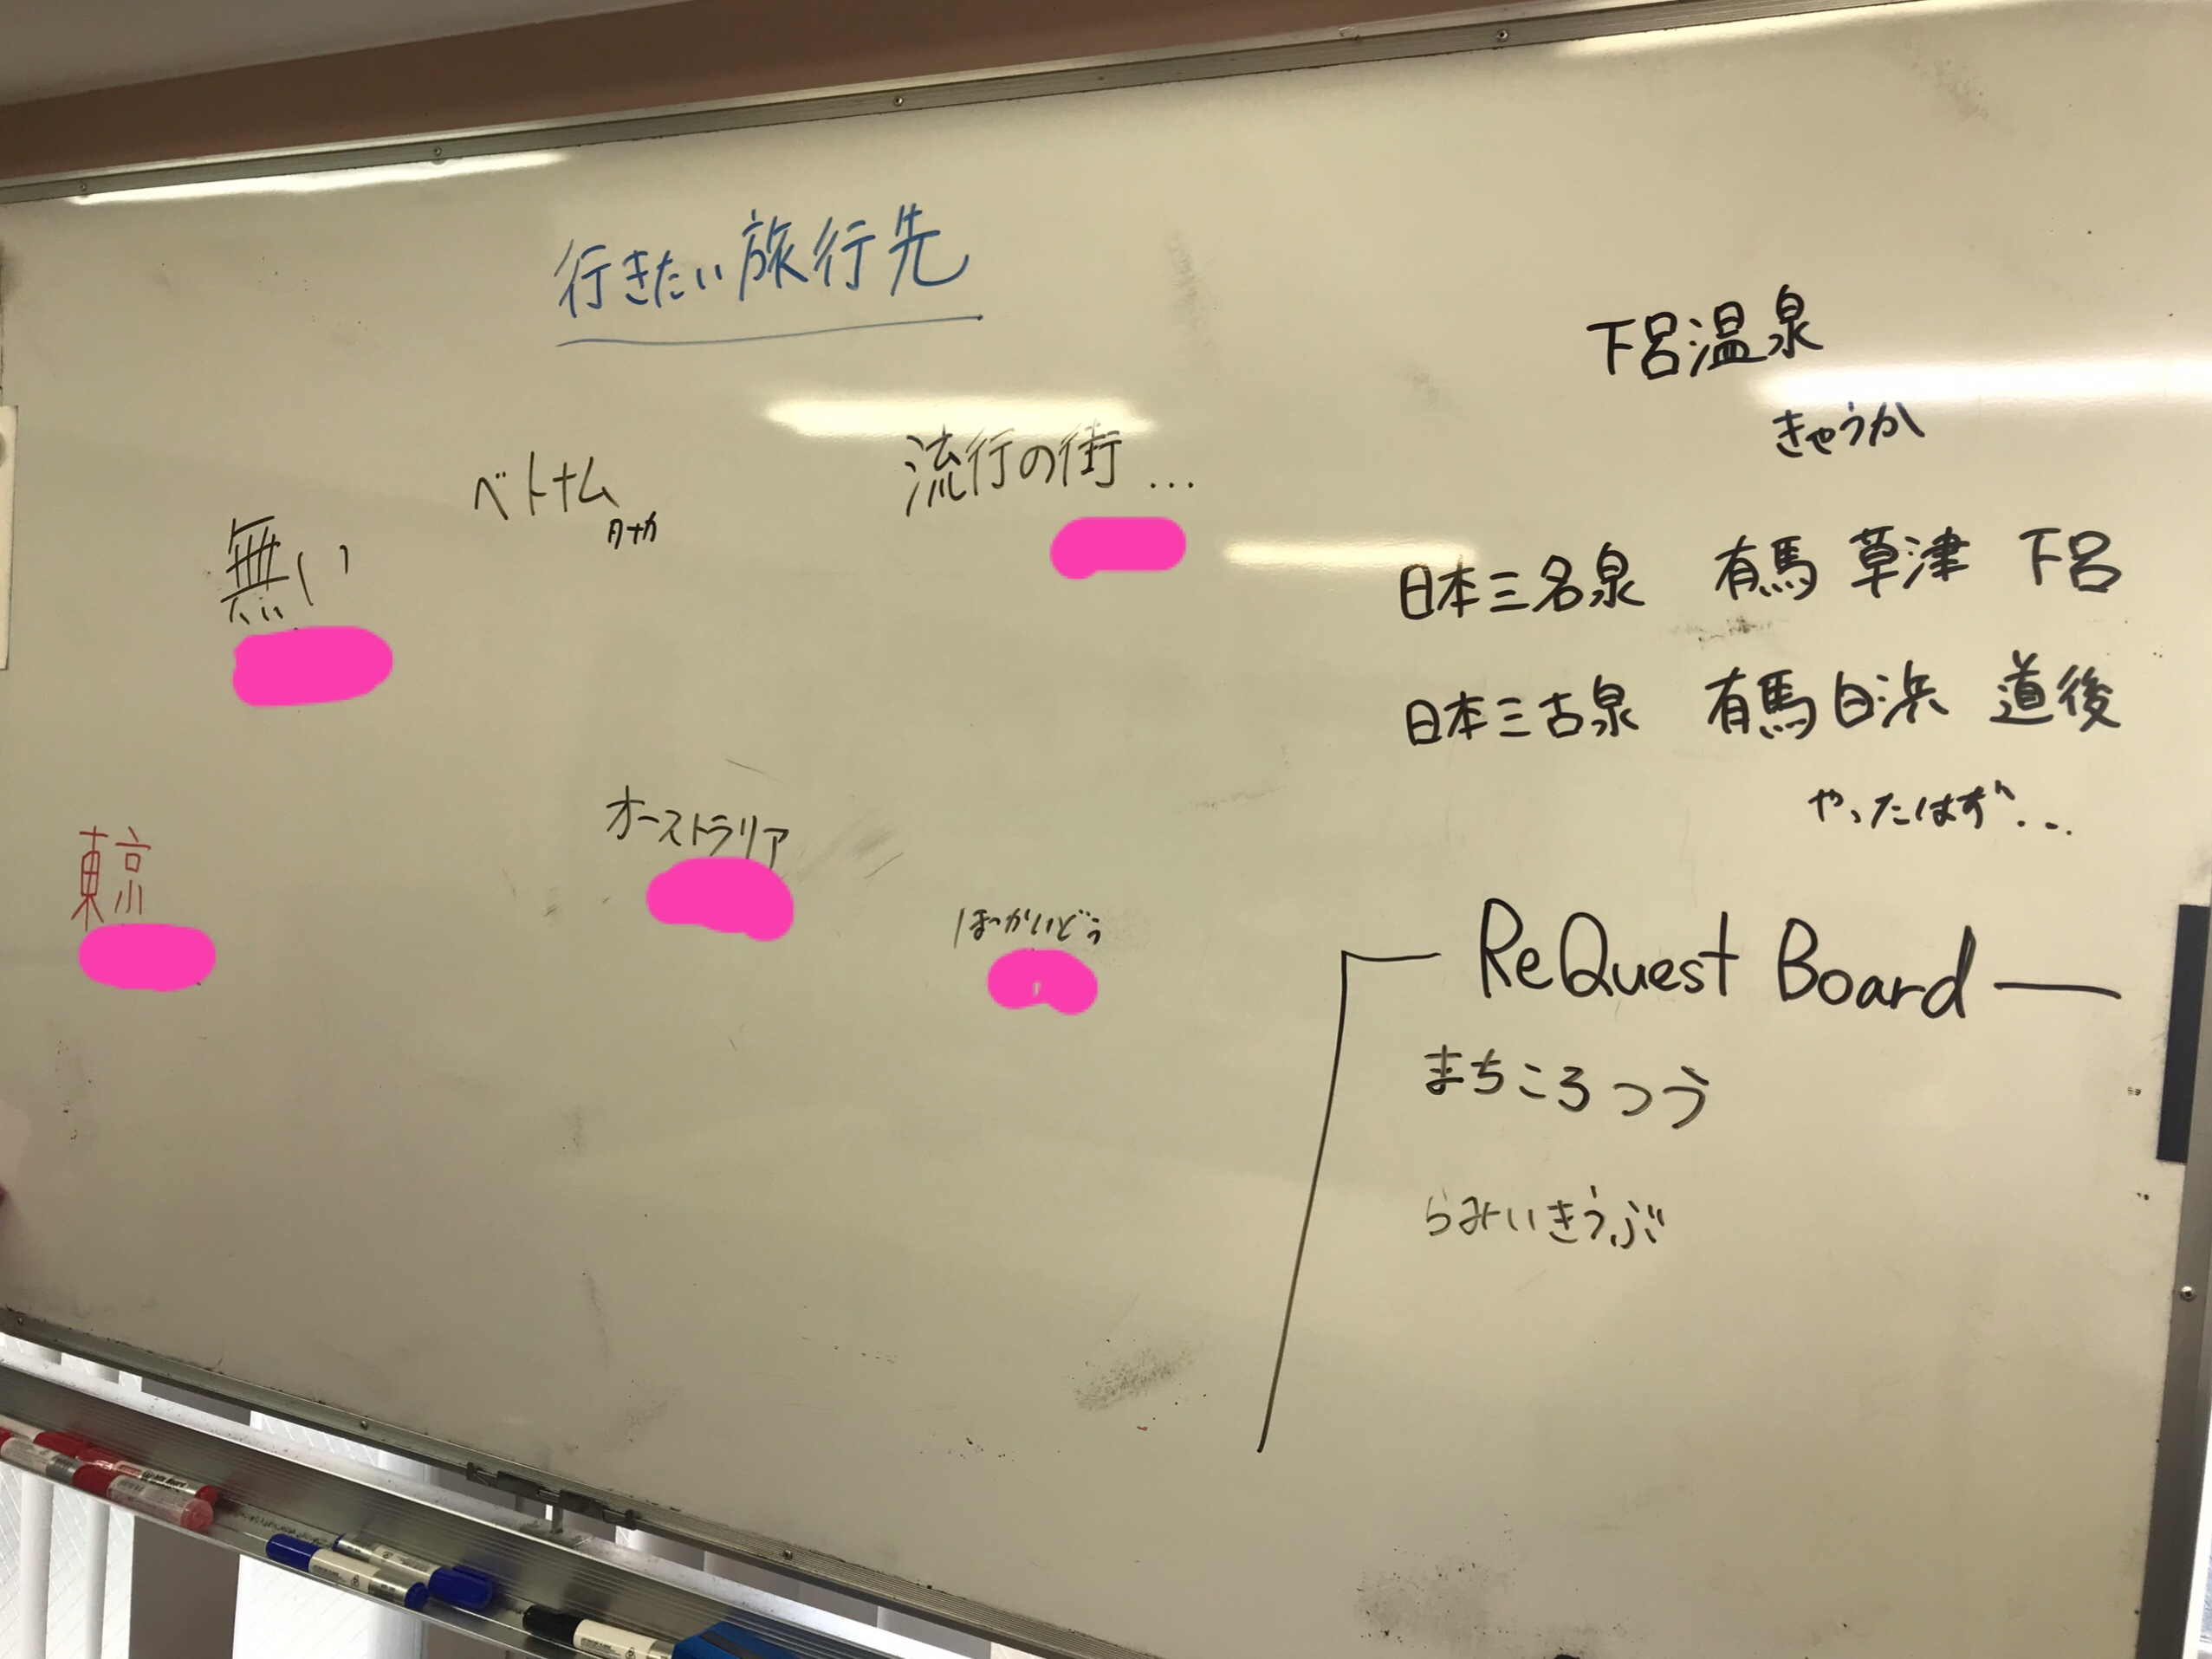 行きたい旅行先
無い
ベトナム
流行の街...
東京
オーストラリア
ほっかいどう
下呂温泉
きゃうか
日本三名泉 有馬 草津 下呂
日本三古泉 有馬 白浜 道後
やったはず...
ReQuest Board
まちころつう
らみいきうぶ